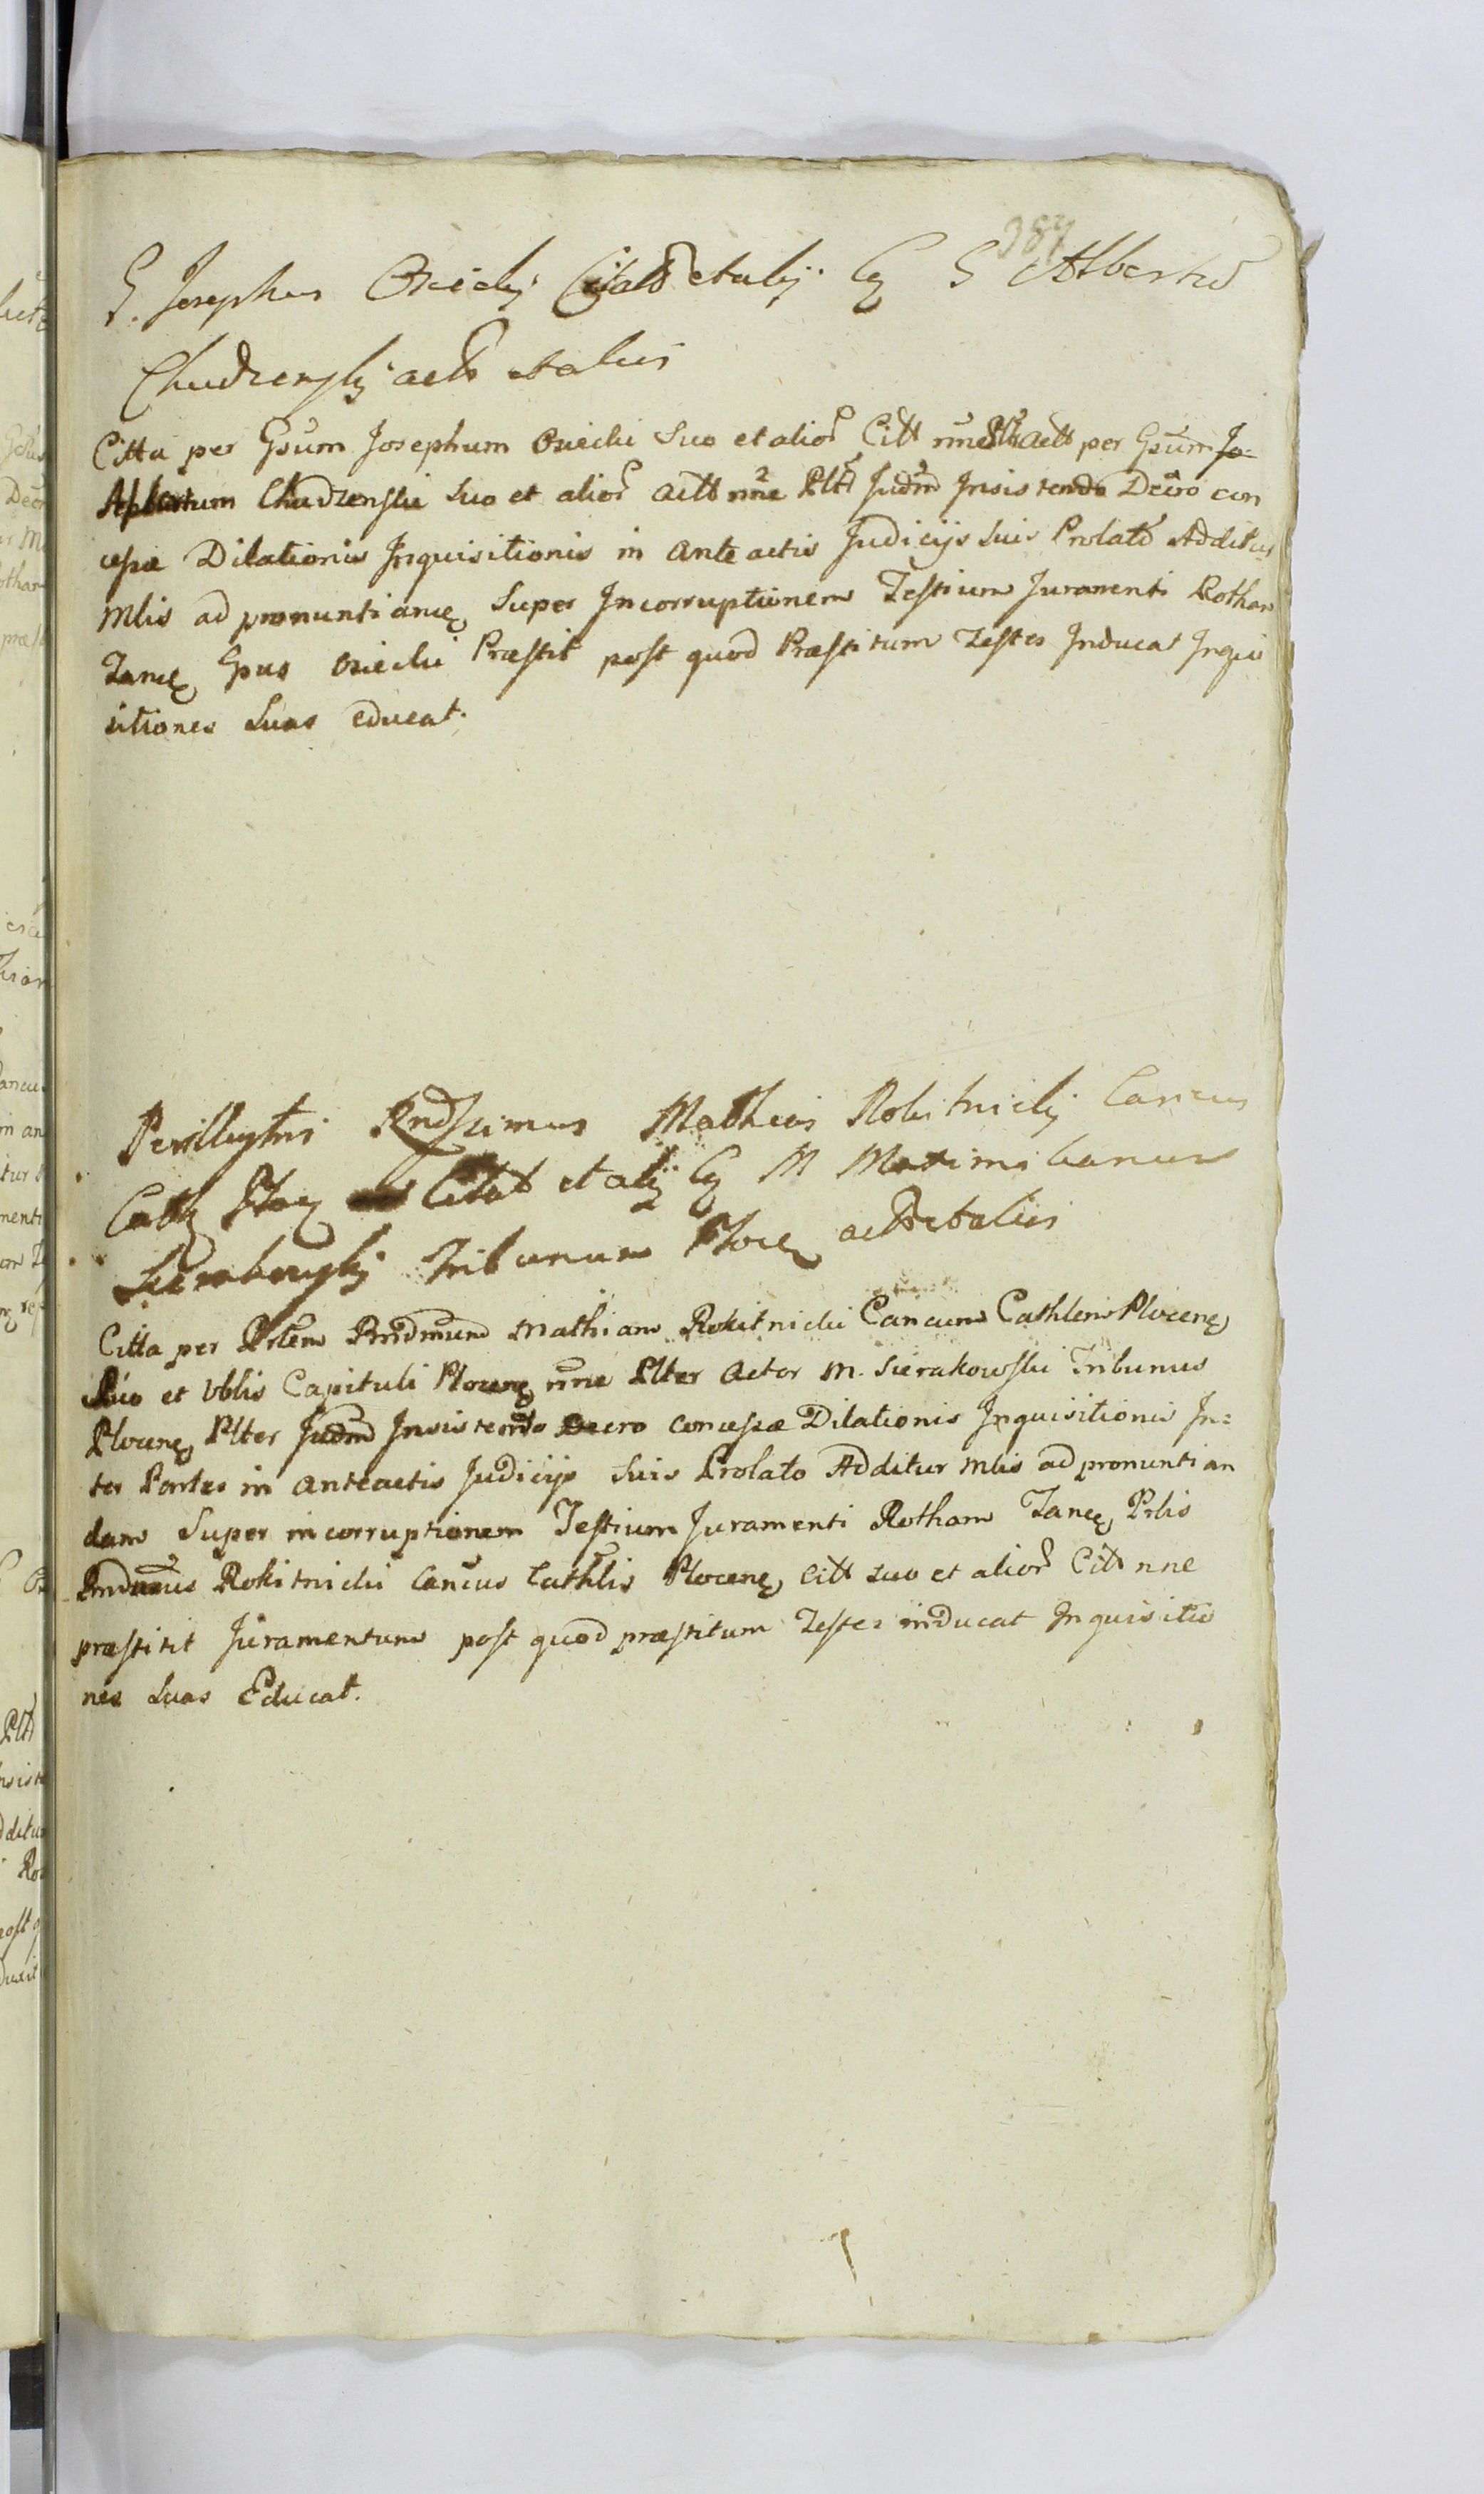 387
G. Josephus Osiecky Citats et alij Cq G Albertũ
Chudzensky act et alios
Citta per Gsum Josephum Osiecki Suo et alior Citt nne act per Gsum Jo-
Albertum Chudzenski Suo et alior actt nne Pltr Judm Insistendo Decro con
cessæ Dilationis Inquisitionis in Ante actis Judicijs Suis Prolato Additur
Mlis ad pronuntiancę Super Incorruptionem Testium Juramenti Rotham
Tancę Gsus Osiecki Præstit post quod Præstitum Testes Inducat Inqui
sitiones Suas educat.
Perillustris Rndssimus Mathias Rokitnicky Cancus
Cathę Płoc Citat et alij Cq M Maximilianum
Sierakowsky Tribunum Plocę act et alios
Citta per Prlem Rndmum Mathiam Rokitnicki Cancum Cathlem Plocenę
Suo et Vblis Capituli Plocenę nne Plter Actor M. Sierakowski Tribunus
Plocenę Plter Judm Insistendo Decro concessæ Dilationis Inquisitionis In=
ter Partes in anteactis Judicijs Suis Prolato Additur Mlis ad pronuntian
dam Super incorruptionem Testium Juramenti Rotham Tancę Prlis
Rndmus Rokitnicki Cancus Cathlis Plocenę Citt suo et alior Citt nne
præstitit Juramentum post quod præstitum Testes inducat Inquisitio
nes Suas Educat.